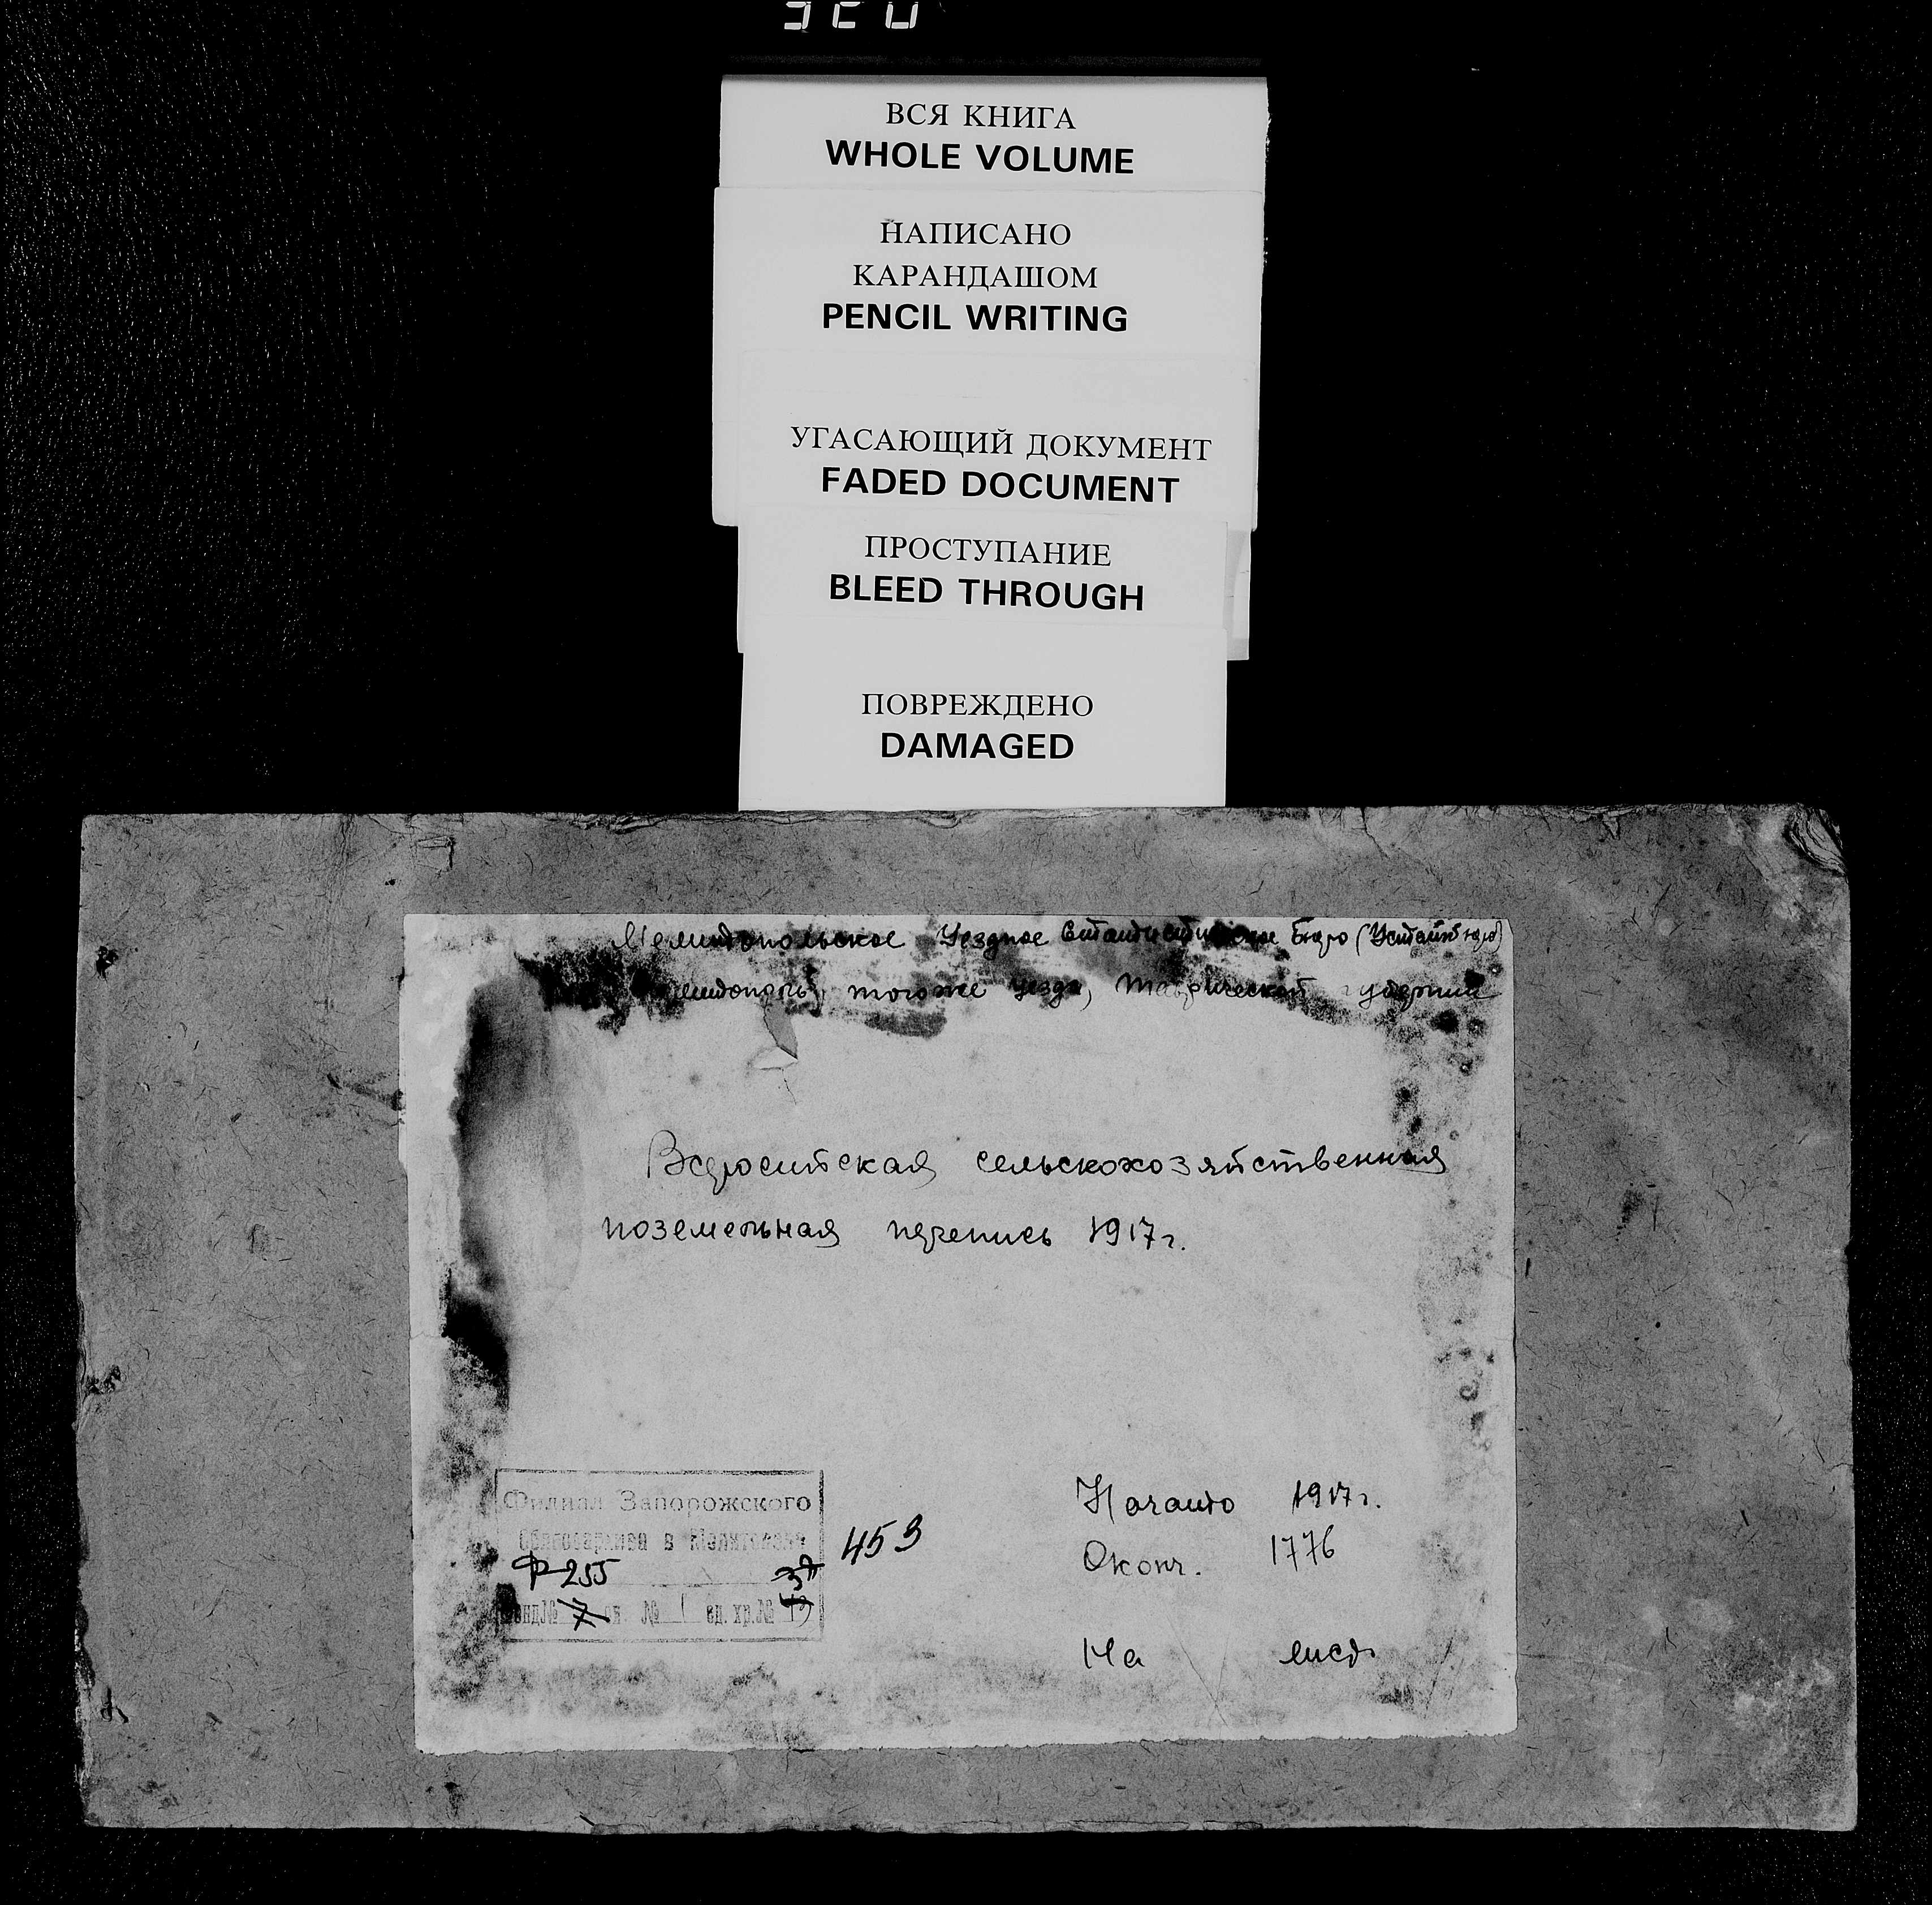 ВСЯ КНИГА
WHOLE VOLUME
НАПИСАНО
КАРАНДАШОМ
PENCIL WRITING
УГАСАЮЩИЙ ДОКУМЕНТ
FADED DOCUMENT
ПРОСТУПАНИЕ
BLEED THROUGH
ПОВРЕЖДЕНО
DAMAGED
Мелитопольское Уездное Статистическое Бюро (Устатбюро)
того же уезда, Таврической губернии
Всероссийская сельскохозяйственная
поземельная перепись 1917 г.
Филиал Запорожского
Облгосархива в Мелитополе
Ф-255
№ 1 ед. хр. №
453
Начато 1917 г.
Оконч. 1776
На лист.